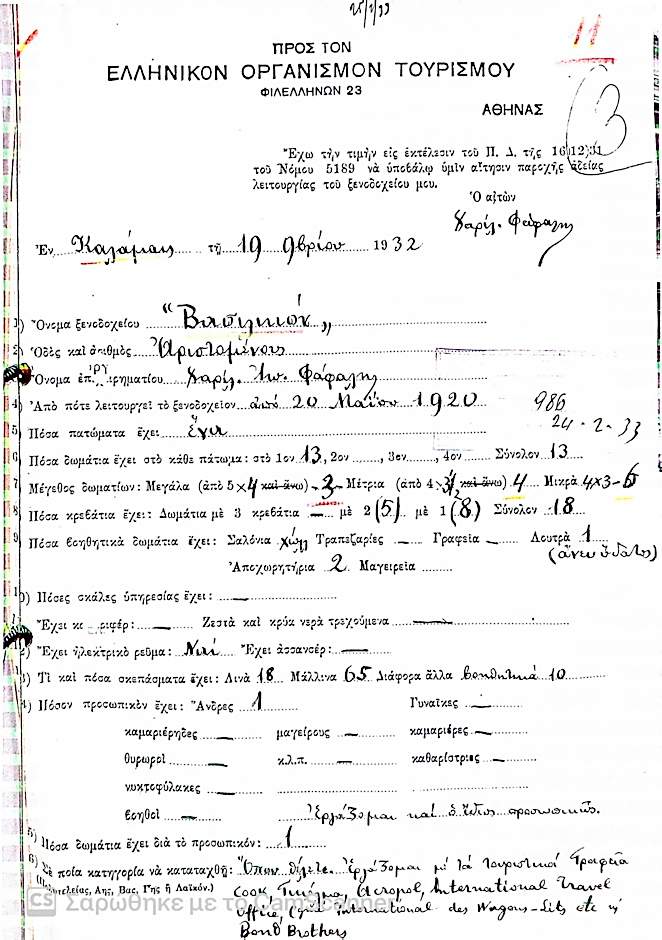 25/2/33
11
ΠΡΟΣ ΤΟΝ
ΕΛΛΗΝΙΚΟΝ ΟΡΓΑΝΙΣΜΟΝ ΤΟΥΡΙΣΜΟΥ
ΦΙΛΕΛΛΗΝΩΝ 23
ΑΘΗΝΑΣ
3
Ἔχω τὴν τιμὴν εἰς ἐκτέλεσιν τοῦ Π. Δ. τῆς 16)12)31
τοῦ Νόμου 5189 νὰ ὑποβάλω ὑμῖν αἴτησιν παροχῆς ἀδείας
λειτουργίας τοῦ ξενοδοχείου μου.
Ὁ αἰτῶν
Χαρίλ. Φάφαλης
Ἐν Καλάμαις τῇ 19 9βρίου 1932
1) Ὄνομα ξενοδοχείου "Βασιλικόν"
2) Ὁδὸς καὶ ἀριθμὸς Ἀριστομένους
Ὄνομα ἐπιχειρηματίου Χαρίλ. Ἀπ. Φάφαλης
4) Ἀπὸ πότε λειτουργεῖ τὸ ξενοδοχεῖον ἀπὸ 20 Μαΐου 1920
986
24-2-33
5) Πόσα πατώματα ἔχει ἕνα
6) Πόσα δωμάτια ἔχει στὸ κάθε πάτωμα: στὸ 1ον 13, 2ον , 3ον , 4ον Σύνολον 13
7) Μέγεθος δωματίων: Μεγάλα (ἀπὸ 5×4 καὶ ἄνω) -3- Μέτρια (ἀπὸ 4× καὶ ἄνω) 4 Μικρὰ 4×3-6
8) Πόσα κρεβάτια ἔχει: Δωμάτια μὲ 3 κρεβάτια — μὲ 2 (5) μὲ 1 (8) Σύνολον 18
9) Πόσα βοηθητικὰ δωμάτια ἔχει: Σαλόνια χώλ Τραπεζαρίες — Γραφεῖα — Λουτρὰ 1
(ἄνευ ὕδατος)
Ἀποχωρητήρια 2 Μαγειρεῖα
10) Πόσες σκάλες ὑπηρεσίας ἔχει: —
Ἔχει κα ριφέρ: — Ζεστὰ καὶ κρύα νερὰ τρεχούμενα —
12) Ἔχει ἠλεκτρικὸ ρεῦμα: Ναί Ἔχει ἀσσανσέρ: —
13) Τί καὶ πόσα σκεπάσματα ἔχει: Λινὰ 18 Μάλλινα 65 Διάφορα ἄλλα βοηθητικά 10
14) Πόσον προσωπικὸν ἔχει: Ἄνδρες 1 Γυναῖκες —
καμαριέρηδες — μαγείρους — καμαριέρες —
θυρωροὶ — κ.λ.π. — καθαρίστριες —
νυκτοφύλακες —
βοηθοὶ — Ἐργάζομαι καὶ ὁ ἴδιος προσωπικῶς.
15) Πόσα δωμάτια ἔχει διὰ τὸ προσωπικόν: 1
16) Σὲ ποία κατηγορία νὰ καταταχθῇ: Ὅπου θέλετε. Ἐργάζομαι μὲ τὰ τουριστικὰ Γραφεῖα
(Πολυτελείας, Αης, Βας, Γης ἢ Λαϊκόν.) Cook, Γκιόλμα, Acropol, International Travel
Office, international des Wagons-Lits etc
Bond Brothers
CS Σαρώθηκε με το CamScanner